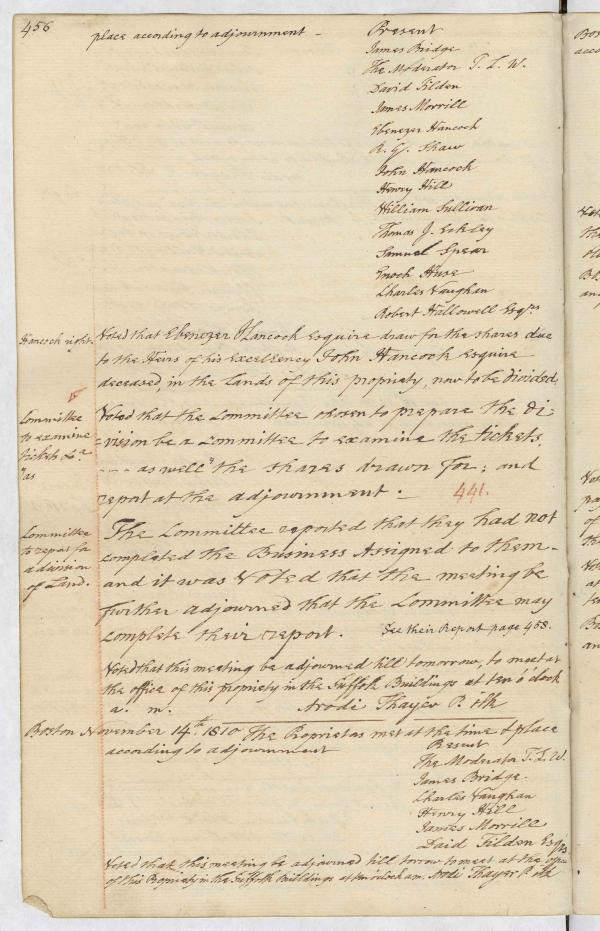 456
place according to adjournment -
Present
James Bridge
The Moderator T. L. W.
David Tilden
James Morrill
Ebenezer Hancock
R. G. Shaw
John Hancock
Henry Hill
William Sullivan
Thomas J. Eckley
Samuel Spear
Enoch Huse
Charles Vaughan
Robert Hallowell Esqrs
Hancock right.
Voted that Ebenezer Hancock Esquire draw for the shares due
to the Heirs of his Excellency John Hancock Esquire
deceased, in the Lands of this propriety, now to be divided.
Committee
to examine
tickets &c
"as
Voted that the Committee chosen to prepare the di-
-vision be a Committee to examine the tickets,
---- as well " the shares drawn for; and
report at the adjournment. -
441.
Committee
to report for
a division
of Land.
The Committee reported that they had not
completed the Business Assigned to them -
and it was Voted that the meeting be
further adjourned that the Committee may
complete their report.
See their Report page 458.
Voted that this meeting be adjourned till tomorrow, to meet at
the office of this propriety in the Suffolk Buildings at ten o'clock
a. m.
Arodi Thayer P. Clk
Boston November 14th 1810 The Proprietors met at the time & place
according to adjournment
Present
The Moderator T. L. W.
James Bridge
Charles Vaughan
Henry Hill
James Morrill
Daid Tilden Esqrs
Voted that this meeting be adjourned till torrow to meet at the office
of this Propriety in the Suffolk Buildings at ten o'clock a.m. Arodi Thayer P. Clk